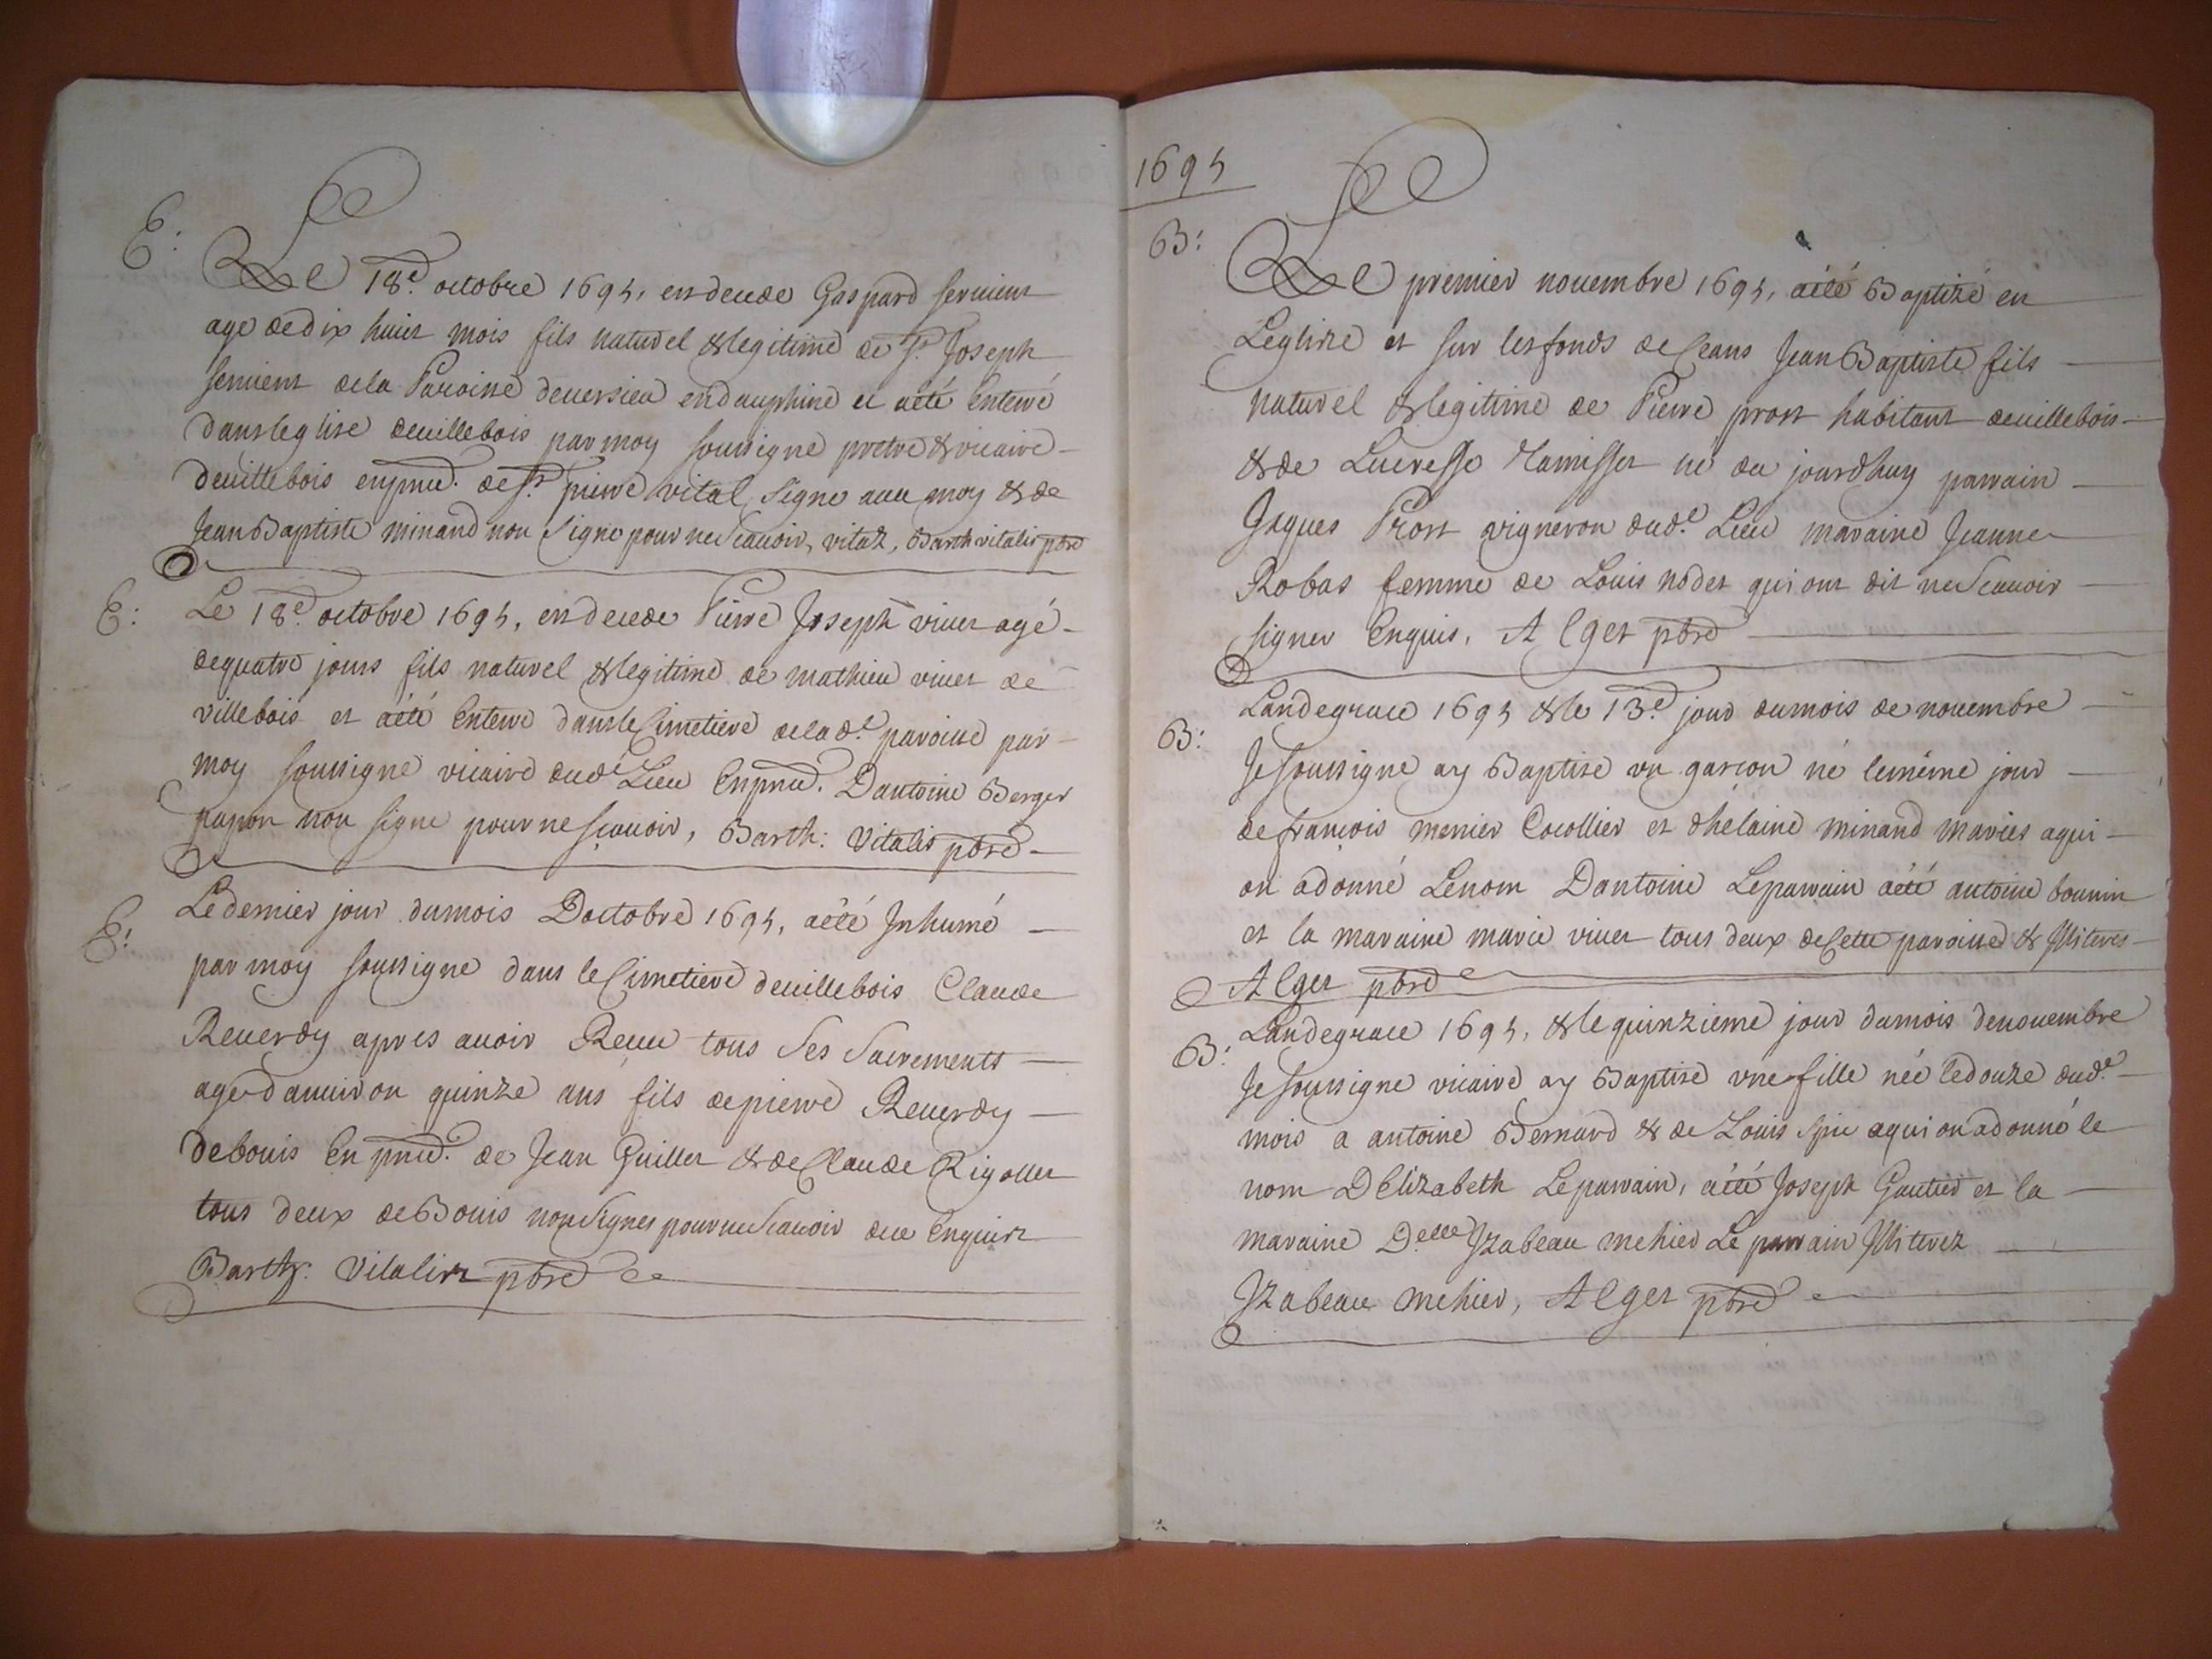 E:
Le 18e. octobre 1695, est decede Gaspard seruient
age de dix huict mois fils naturel & legitime de sr. Joseph
seruient de la Paroisse de versieu en dauphine et a été Enterré
dans leglise de villebois par moy soussigne pretre & vicaire
de villebois en pnce. de sr. pierre vital signe auec moy & de
Jean Baptiste minand non signe pour ne scauoir, vitaz, Barth vitalis pbre
E:
Le 18e. octobre 1695, est decede Pierre Joseph viuet agé
de quatre jours fils naturel & legitime de mathieu viuet de
villebois et a été Enterré dans le Cimetiere de lad.e paroisse par
moy soussigne vicaire dud.e Lieu En pnce. Dantoine Berger
papon non signe pour ne sçauoir, Barth: Vitalis pbre
E:
Le dernier jour du mois Doctobre 1695, a été Inhumé
par moy soussigne dans le Cimetiere de villebois Claude
Reuerdy apres auoir Receu tous ses sacrements
agé danuiron quinze ans fils de pierre Reuerdy
de bouis En pnce. de Jean Guillet & de Claude Rigollet
tous deux de Bouis non signes pour ne scauoir de ce Enquis
Barth: Vitalis pbre
1695
B:
Le premier nouembre 1695, a été Baptizé en
Leglize et sur les fonds de Ceans Jean Baptiste fils
naturel & legitime de Pierre prost habitant de villebois
& de Lucresse né du jourdhuy parrain
Jaques Prost vigneron dud.e Lieu maraine Jeanne
Robas femme de Louis nodet qui ont dit ne scauoir
signer Enquis, Alget pbre
B:
Landegrace 1695 & le 13e. jour du mois de nouembre
Je soussigne ay Baptise vn garçon né le même jour
de françois menier Cocollier et dhelaine minand mariés a qui
on a donné Le nom Dantoine Le parrain a été antoine bounin
et la maraine marie viuet tous deux de Cette paroisse & Illiterés
Alget pbre
B:
Landegrace 1695, & le quinzieme jour du mois de nouembre
Je soussigne vicaire ay Baptise vne fille née le douze dud.e
mois a antoine Bernard & de Louis a qui on a donné le
nom DElizabeth Le parrain, a été Joseph Gautier et la
maraine Delle Izabeau mehier Le parrain Illiterez
Izabeau mehier, Alget pbre